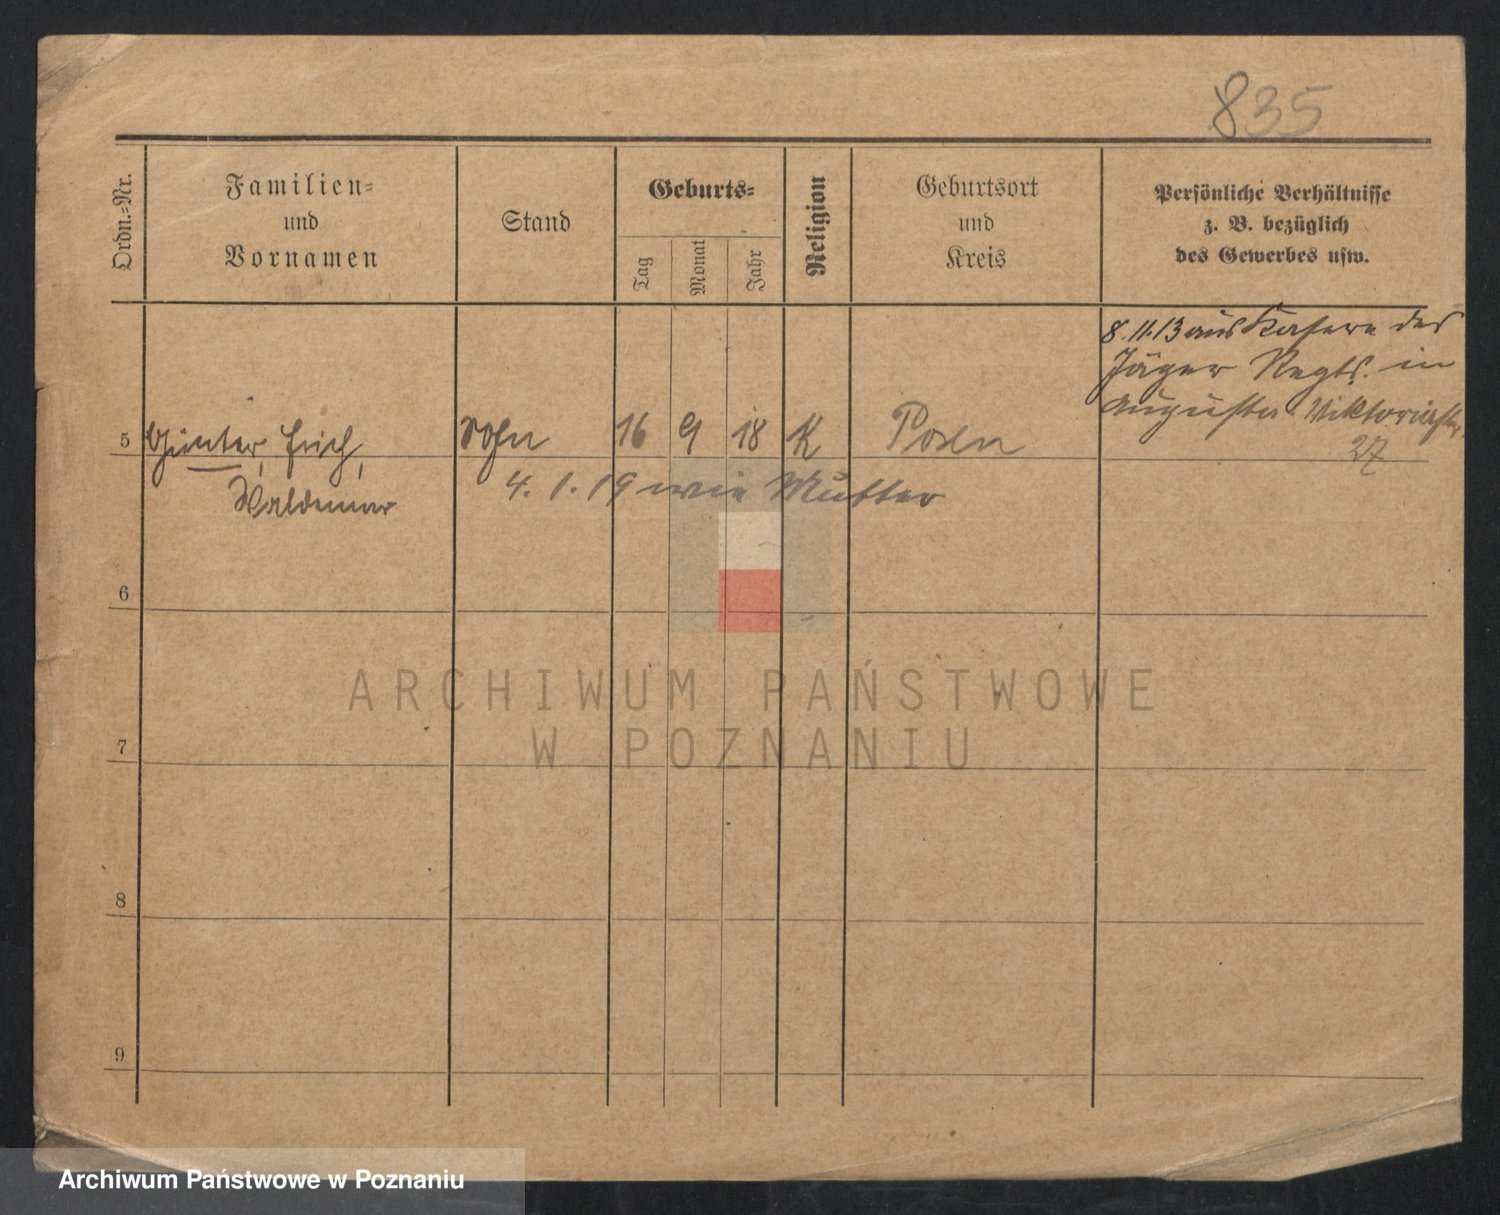 835
Ordn.-Nr.
Familien-
und
Vornamen
Stand
Geburts-
Tag
Monat
Jahr
Religion
Geburtsort
und
Kreis
Persönliche Verhältnisse
z. B. bezüglich
des Gewerbes usw.
8.11.13 aus Kaserne des
Jäger Regts. in
Augusta Viktoriastr.
27
5 Günter, Erich, Sohn 16 9 18 K Posen
Waldemar
4. 1. 19 wie Mutter
6
7
8
9
ARCHIWUM PAŃSTWOWE
W POZNANIU
Archiwum Państwowe w Poznaniu